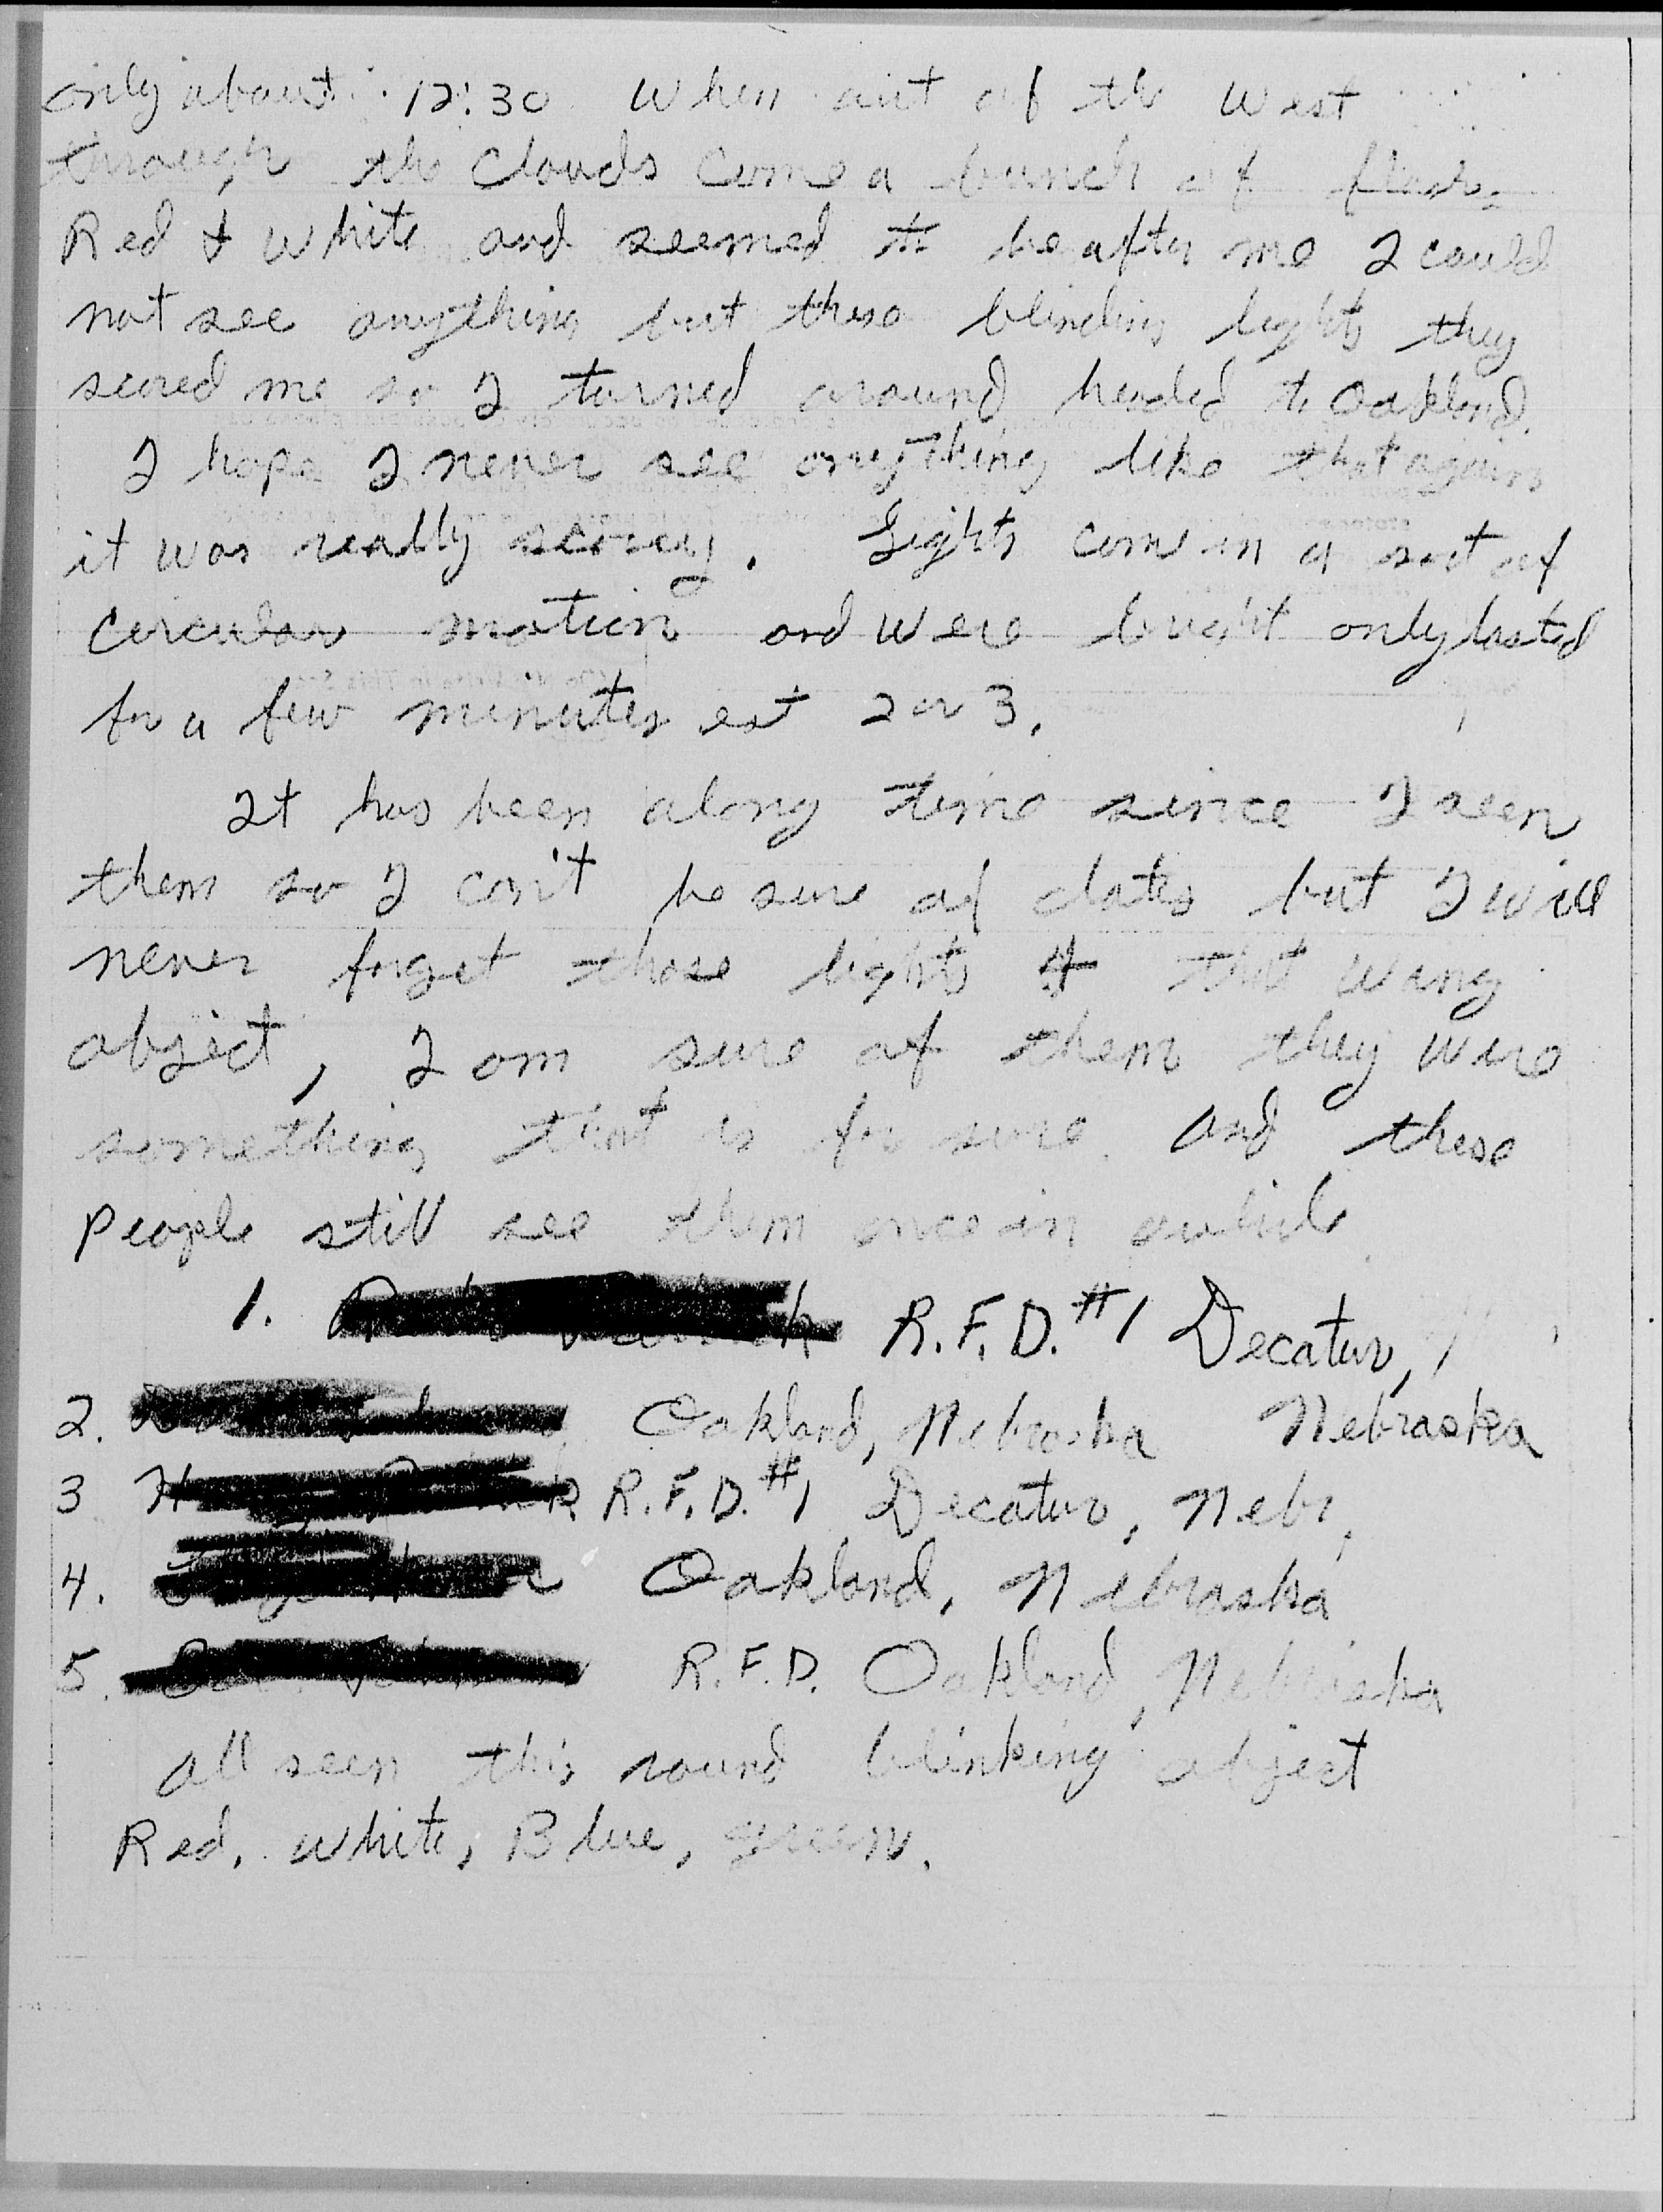 only about 12:30 when out of the West
through the Clouds come a bunch of flash
Red & White and seemed to be after me I could
not see anything but these blinding lights they
scared me so I turned around headed to Oakland.
I hope I never see anything like that again
it was really scarey. Lights come in a sort of
circular motion and were bright only lasted
for a few minutes est 2 or 3.
It has been along time since I seen
them so I can't be sure of dates but I will
never forget those lights & that wing
object, I am sure of them they were
something that is for sure. and these
People still see them once in awhile.
1. R.F.D. #1 Decatur,
2. Oakland, Nebraska Nebraska
3 R.F.D. #1 Decatur, Nebr.
4. Oakland, Nebraska
5. R.F.D. Oakland, Nebraska
all seen this round blinking object
Red, White, Blue, green.